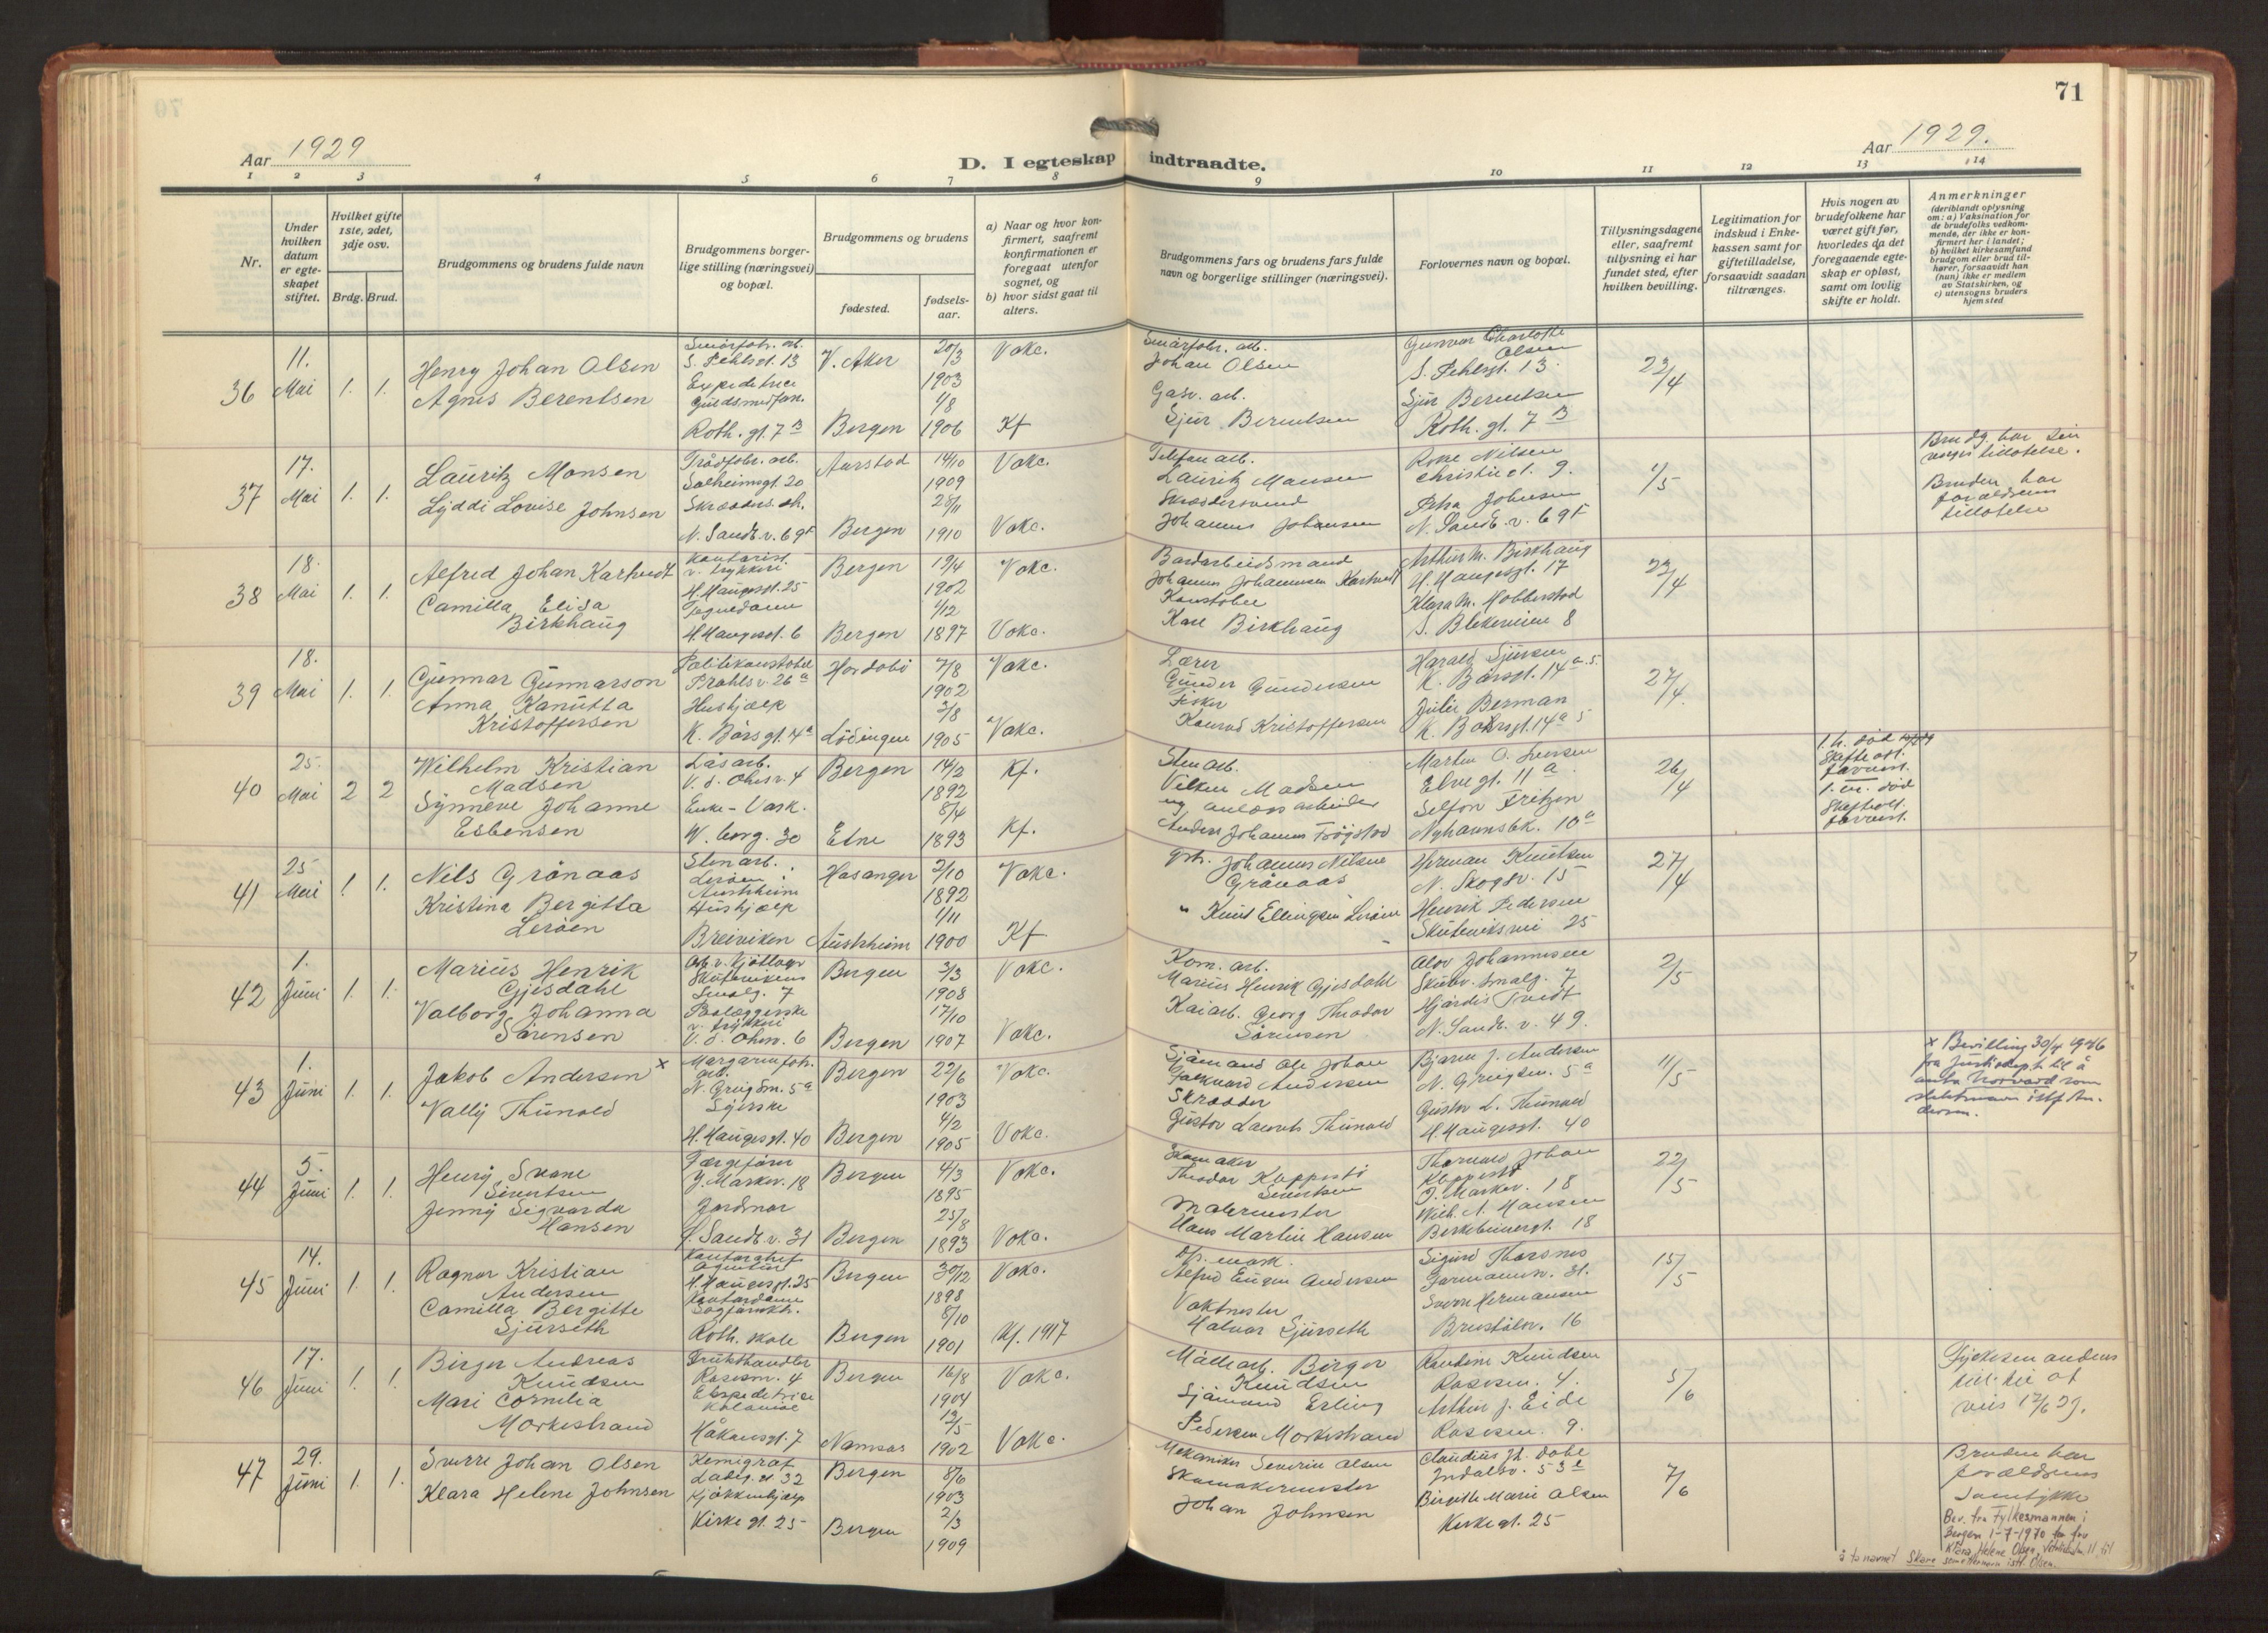 71
Aar 1929
D. I egteskap indtraadte.
Aar 1929.
1 2 3 4 5 6 7 8 9 10 11 12 13 14
Nr.
Under hvilken datum er egte-skapet stiftet.
Hvilket gifte 1ste, 2det, 3dje osv.
Brdg. Brud.
Brudgommens og brudens fulde navn
Brudgommens borger-lige stilling (næringsvei) og bopæl.
Brudgommens og brudens
fødested.
fødsels-aar.
a) Naar og hvor kon-firmert, saafremt konfirmationen er foregaat utenfor sognet, og
b) hvor sidst gaat til alters.
Brudgommens fars og brudens fars fulde navn og borgerlige stillinger (næringsvei).
Forlovernes navn og bopæl.
Tillysningsdagene eller, saafremt tillysning ei har fundet sted, efter hvilken bevilling.
Legitimation for indskud i Enke-kassen samt for giftetilladelse, forsaavidt saadan tiltrænges.
Hvis nogen av brudefolkene har været gift før, hvorledes da det foregaaende egte-skap er opløst, samt om lovlig skifte er holdt.
Anmerkninger
(deriblandt oplysning om: a) Vaksination for de brudefolks vedkom-mende, der ikke er kon-firmert her i landet; b) hvilket kirkesamfund brudgom eller brud til-hører, forsaavidt han (hun) ikke er medlem av Statskirken, og c) utensogns bruders hjemsted
36
11. Mai
1. 1.
Henry Johan Olsen
Agnes Berentsen
S. Pehlsgt. 13
Expeditrice
Roth. gt. 7 B
V. Aker
20/3 1903
Bergen
1/8 1906
Vokc.
Kf
Johan Olsen
Sjur Berentsen
Gunvor Charlotte Olsen
S. Pehlsgt. 13.
Sjur Berentsen
Roth. gt. 7 B
23/4
37
17. Mai
1. 1.
Lauritz Monsen
Lyddi Lovise Johnsen
Trådfabr. arb.
Solheimsgt. 20
N. Sandv. v. 69
Aarstad
14/10 1909
Bergen
28/11 1910
Vokc.
Vokc.
Telefon arb.
Lauritz Monsen
Skreddersvend
Johannes Johansen
Christie gt. 9.
Petra Johnsen
N. Sandv. v. 69
1/5
Brudg. har sin verges tillatelse.
Bruden har forældrenes tillatelse
38
18. Mai
1. 1.
Alfred Johan Kartvedt
Camilla Elisa Birkhaug
Kontorist v. trykkeri
H. Haugesgt. 25
H. Haugesgt. 6
Bergen
1902
Bergen
1/12 1897
Vokc.
Vokc.
Johannes Johannesen Kartvedt
Konstabel
Karl Birkhaug
Arthur M. Birkhaug
H. Haugesgt. 17
Klara M. Hobberstad
S. Blekeveien 8
23/4
39
18. Mai
1. 1.
Gunnar Gunnarson
Anna Kanutta Kristoffersen
Politikonstabel
Prahlsv. 26 a
Hushjælp
K. Børsgt. 14 a
Hordabø
7/8 1902
Lødingen
3/8 1905
Vokc.
Vokc.
Lærer
Gunder Gundersen
Fisker
Konrad Kristoffersen
Harald Sjursen
K. Børsgt. 14 a. 5.
Julie Berman
K. Børsgt. 14 a 5
27/4.
40
25. Mai
2 2
Wilhelm Kristian Madsen
Synneve Johanne Esbensen
Låsarb.
V. d. Ohesv. 4
Enke - Vask.
W. borg. 30
Bergen
14/2 1892
Etne
8/4 1893
Kf.
Kf.
Stenarb.
Vilken Madsen
Martin O. Iversen
Elve gt. 11 a
Selfon Fritzen
Nyhavnsbk. 10 a
26/4
41
25 Mai
1. 1.
Nils Grånaas
Kristina Bergitta Lerøen
Stenarb.
Lerøen
Austrheim
Hushjælp
Breiviken
Hosanger
2/10 1892
Austrheim
1/11 1900
Vokc.
Kf.
Johannes Nilsen Grånaas
" Knut Ellingsen Lerøen
Herman Knutsen
N. Skogsv. 15
Henrik Pedersen
Skuteviksvei 25
27/4
42
1. Juni
1. 1.
Marius Henrik Gjesdahl
Valborg Johanna Sørensen
Skutevikens
Smalg. 7
Paalæggerske v. trykkeri
V. d. Ohesv. 6
Bergen
3/3 1908
Bergen
17/10 1907
Vokc.
Vokc.
Kom. arb.
Marius Henrik Gjesdahl
Kaiarb. Georg Theodor Sørensen
Alov Johannesen
Skutev. smalg. 7
Hjørdis Tvedt
N. Sandv. v. 49.
2/5
43
1. Juni
1. 1.
Jakob Andersen x
Vally Thunold
Margarinfabr. arb.
N. Griegsm. 5 a
Syerske
H. Haugesgt. 40
Bergen
22/6 1903
Bergen
4/2 1905
Vokc.
Vokc.
Sjømand Ole Johan Andersen
Skrædder
Gustav Laurits Thunold
Bjarne J. Andersen
N. Griegsm. 5 a
Gustav L. Thunold
H. Haugesgt. 40
11/5
x Bevilling 30/4 1946 fra Justisdept. til å anta Norvard som slektsnavn istf. Andersen.
44
5. Juni
1. 1.
Henry Svane Sivertsen
Jenny Sigvarda Hansen
Færgefører
Y. Markev. 18
Jordmor
N. Sandv. v. 31
Bergen
4/3 1895
Bergen
25/8 1893
Vokc.
Vokc.
Skomaker
Theodor Koppestø Sivertsen
Malermester
Hans Martin Hansen
Thorvald Johan Koppestø
Y. Markev. 18
Wilh. A. Hansen
Birkebeinergt. 18
22/5
45
14. Juni
1. 1.
Ragnar Kristian Andersen
Camilla Bergitte Sjurseth
H. Haugesgt. 25
Kontordame
Roth. skole
Bergen
30/12 1898
Bergen
8/10 1901
Vokc.
Kf. 1917
Alfred Eugen Andersen
Vaktmester
Halvor Sjurseth
Sigurd Thorsnes
Formannsv. 31.
Sverre Hermansen
15/5
46
17. Juni
1. 1.
Birger Andreas Knudsen
Mari Cornelia Morkestrand
Frukthandler
Rosesm. 4
Ekspeditrice
Kolonial
Håkonsgt. 7
Bergen
16/8 1904
Namsos
13/5 1902
Vokc.
Vokc.
Birger Knudsen
Sjømand Erling Pedersen Morkestrand
Randine Knudsen
Rosesm. 4.
Arthur J. Eide
Rosesm. 9.
5/6
47
29. Juni
1. 1.
Sverre Johan Olsen
Klara Helene Johnsen
Kemigraf
Ladeg. gt 32
Kjøkkenhjælp
Kirke gt. 25
Bergen
8/6 1903
Bergen
2/3 1909
Mekaniker Severin Olsen
Skomakermester
Johan Johnsen
Birgitte Marie Olsen
Kirkegt. 25
7/6
Bruden har forældrenes samtykke
Bev. fra Fylkesmannen i Bergen 1-7-1970 for fru Klara Helene Olsen, til å ta navnet Skare som etternavn istf. Olsen.